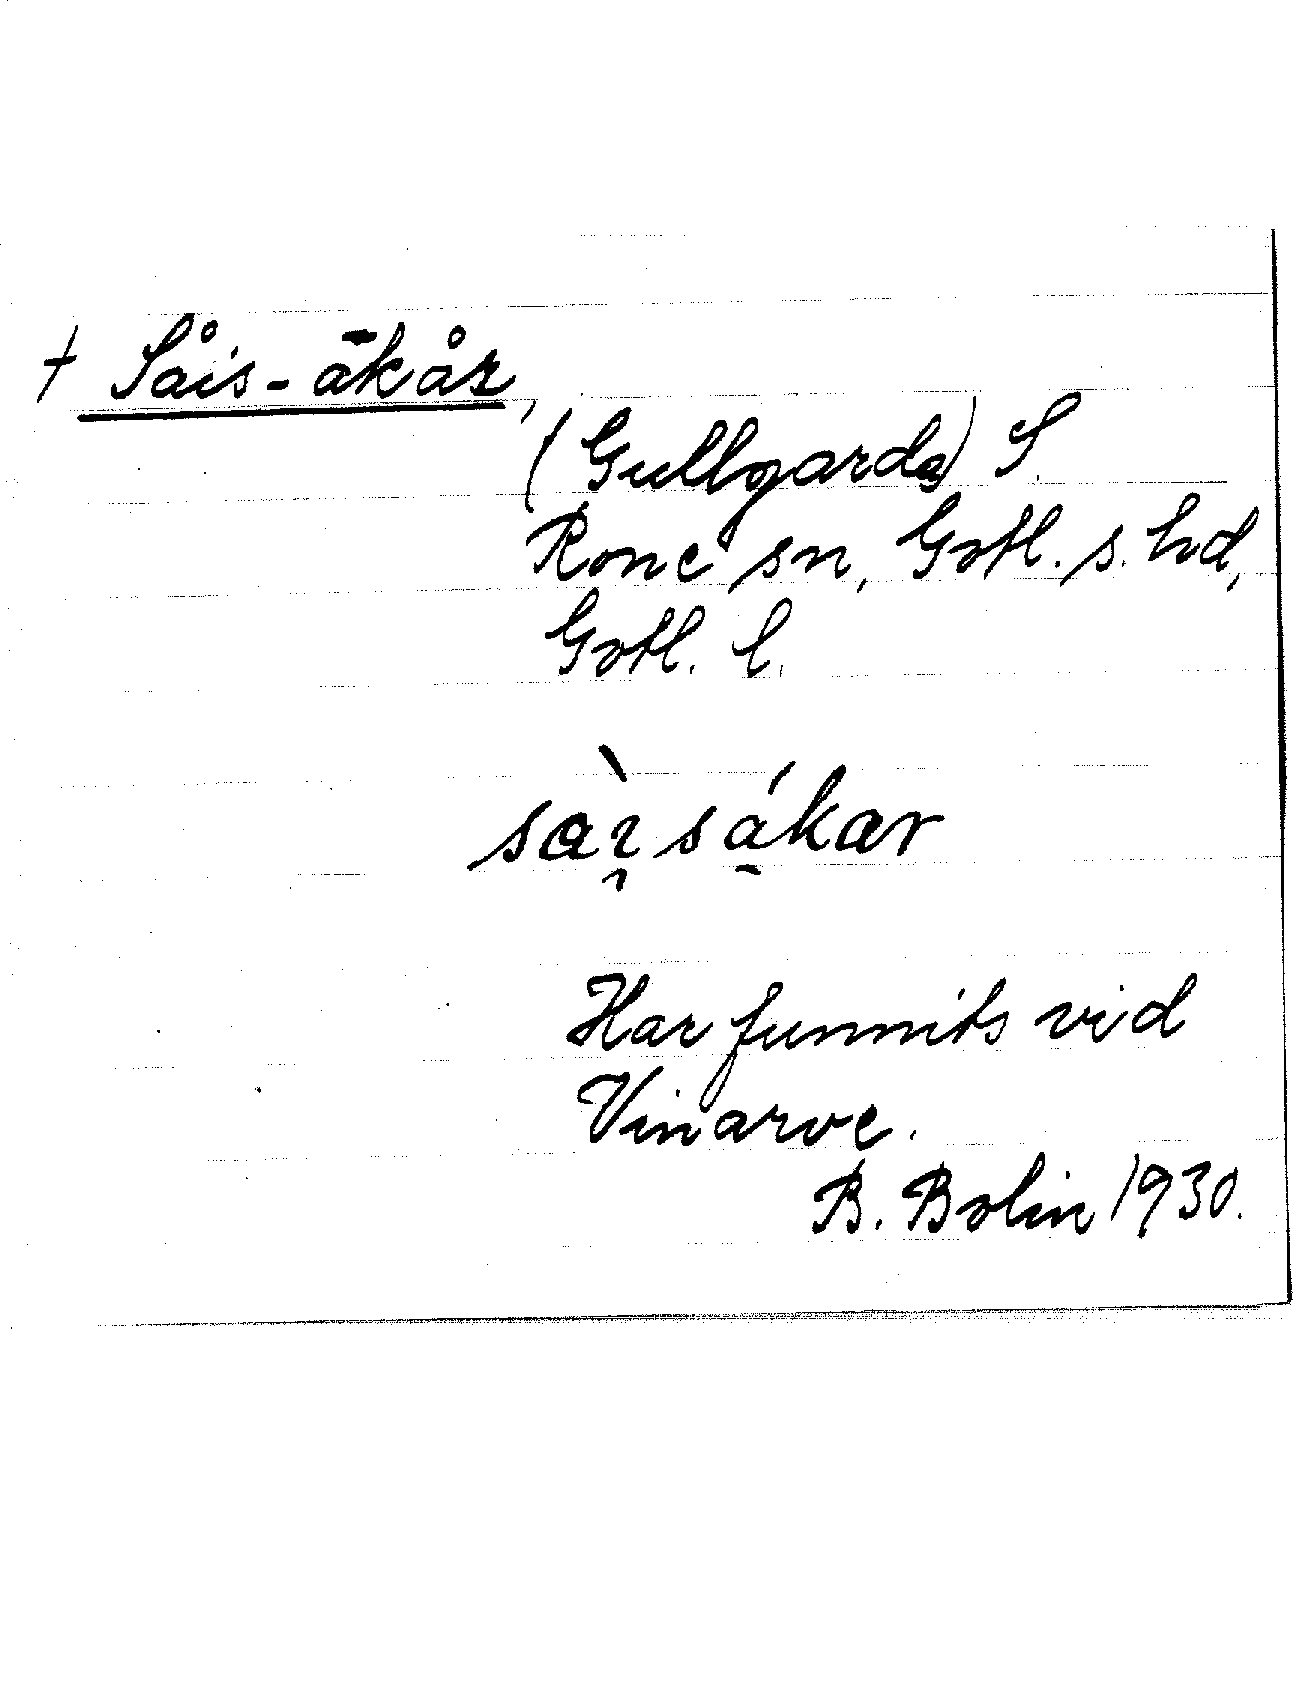 † Såis-ākår,
(Gullgarda) S.
Rone sn, Gotl. s. hd,
Gotl. l.
sàɪ̯sákar
Har funnits vid
Vinarve.
B. Bolin 1930.